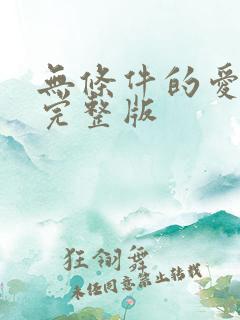 無條件的愛
完整版
狂翎舞
未经同意禁止转载